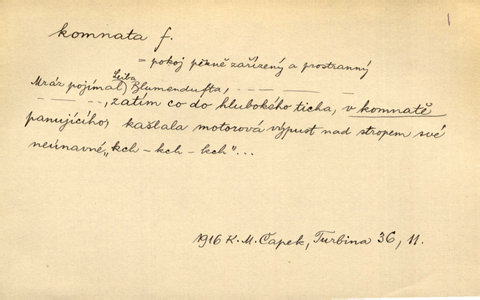 1
komnata f.
= pokoj pěkně zařízený a prostranný
Leiba
Mráz pojímal Blumendufta, — — — —
— — —, zatím co do hlubokého ticha, v komnatě
panujícího, kašlala motorová výpusť nad stropem své
neúnavné „kch – kch – kch"...
1916 K. M. Čapek, Turbina 36, 11.